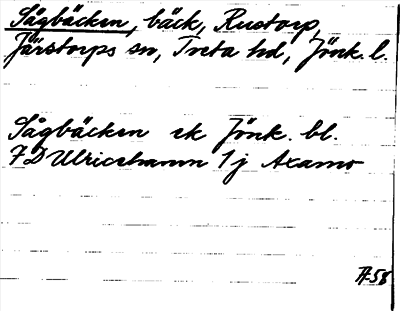 Sågbäcken, bäck, Rustorp,
Järstorps sn, Tveta hd, Jönk. l.
Sågbäcken ek Jönk. bl.
7D Ulricehamn 1j Axamo
A-58